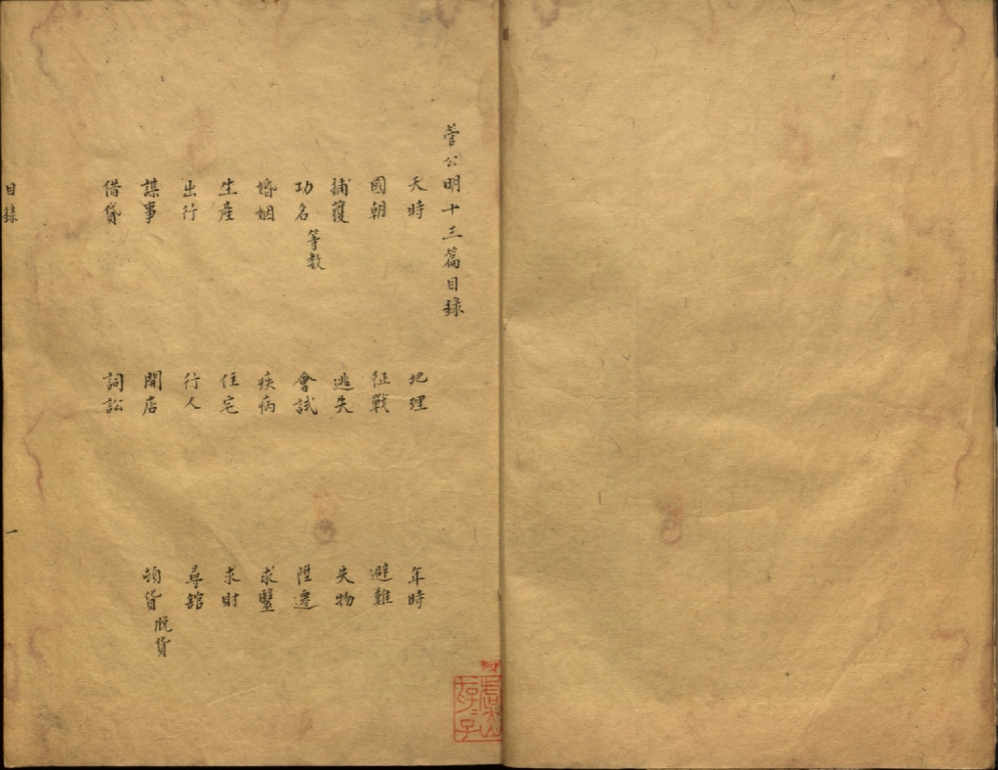 管公明十三篇目錄
天時 地理 年時
國朝 征戰 避難
捕獲 逃失 失物
功名等数 會試 陞遷
婚姻 疾病 求醫
生產 住宅 求財
出行 行人 尋舘
謀事 開店 貨脱貨
借貸 詞訟
目錄 一